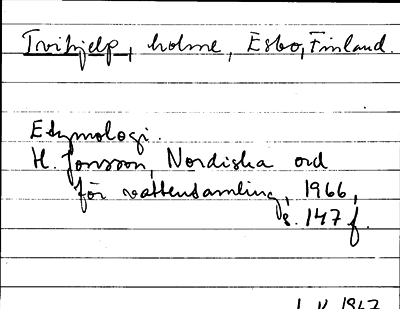 Tvihjelp, holme, Esbo, Finland.
Etymologi.
H. Jonsson, Nordiska ord
för vattensamling, 1966,
s. 147 f.